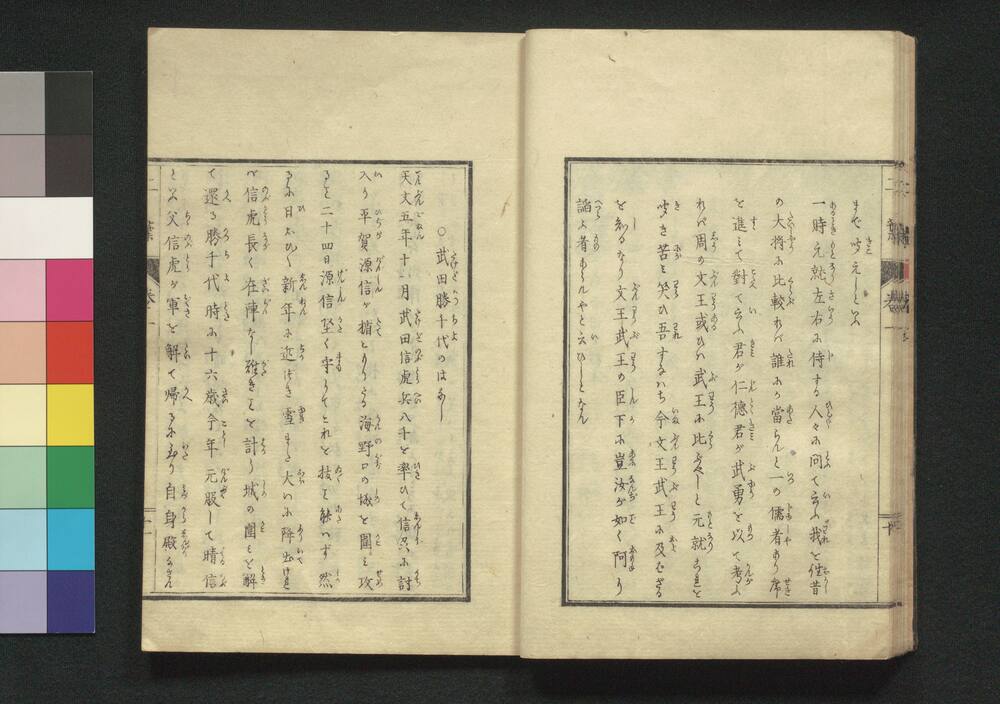 まで聞えしとぞ
一時元就左右に侍する人々に問て云ふ我を往昔
の大将に比較れバ誰に當らんと一の儒者あり席
を進ミて對て云ふ君が仁徳君が武勇を以て考ふ
れバ周の文王或ひハ武王に比べしと元就これを
聞き苦と笑ひ吾するハち今文王武王に及ばざる
を知るなり文王武王の臣下に豈汝が如く阿り
諂ふ者あらんやと云ひしとなん
○武田勝千代のはなし
天文五年十一月武田信虎兵八千を率ひて信州に討
入り平賀源信が楯こもりたる海野口の城を圍ミ攻
る三十四日源信堅く守りてこれを抜く能ハず然
るに日おひ〳〵新年に近づき雪また大いに降出けれ
バ信虎長く在陣なし難きことを計り城の圍ミを解
て還る勝千代時に十六歳今年元服して晴信
と云父信虎が軍を解て帰るに當り自身殿なさん